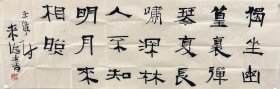 獨坐幽
篁裏彈
琴复長
嘯深林
人不知
明月來
相照
壬寅